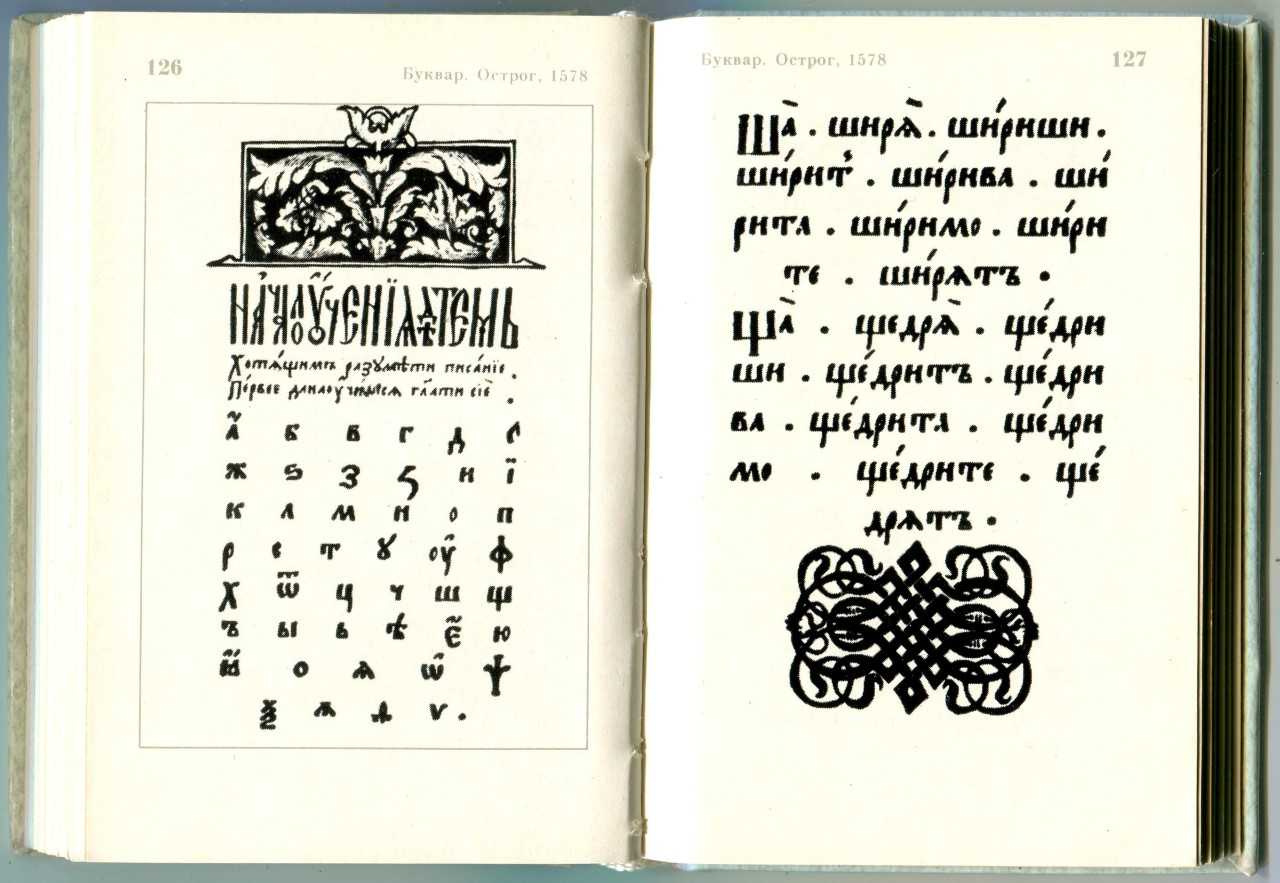 126
Буквар. Острог, 1578
НАЧАЛО ОУЧЕНЇА ДѢТЕМЬ
Хотѧ́щимъ разꙋмѣ́ти писа́нїе.
а҃ б в г д є
ж ѕ з ꙁ и ї
к л м н о п
р с т ꙋ оу҆ ф
х ѿ ц ч ш щ
ъ ы ь ѣ є҃ ю
ѻ ѧ ѡ҃ ѱ
ѯ ѫ ѵ.
Буквар. Острог, 1578
127
Ша̑ . ширѧ̑ . ши́риши .
ши́рит̾ . ши́рива . ши́
рита . ши́римо . ши́ри
те . ши́рѧтъ .
Ща̑ . щедрѧ̑ . ще́дри
ши . ще́дритъ . ще́дри
ва . ще́дрита . ще́дри
мо . ще́дрите . ще́
дрѧтъ .